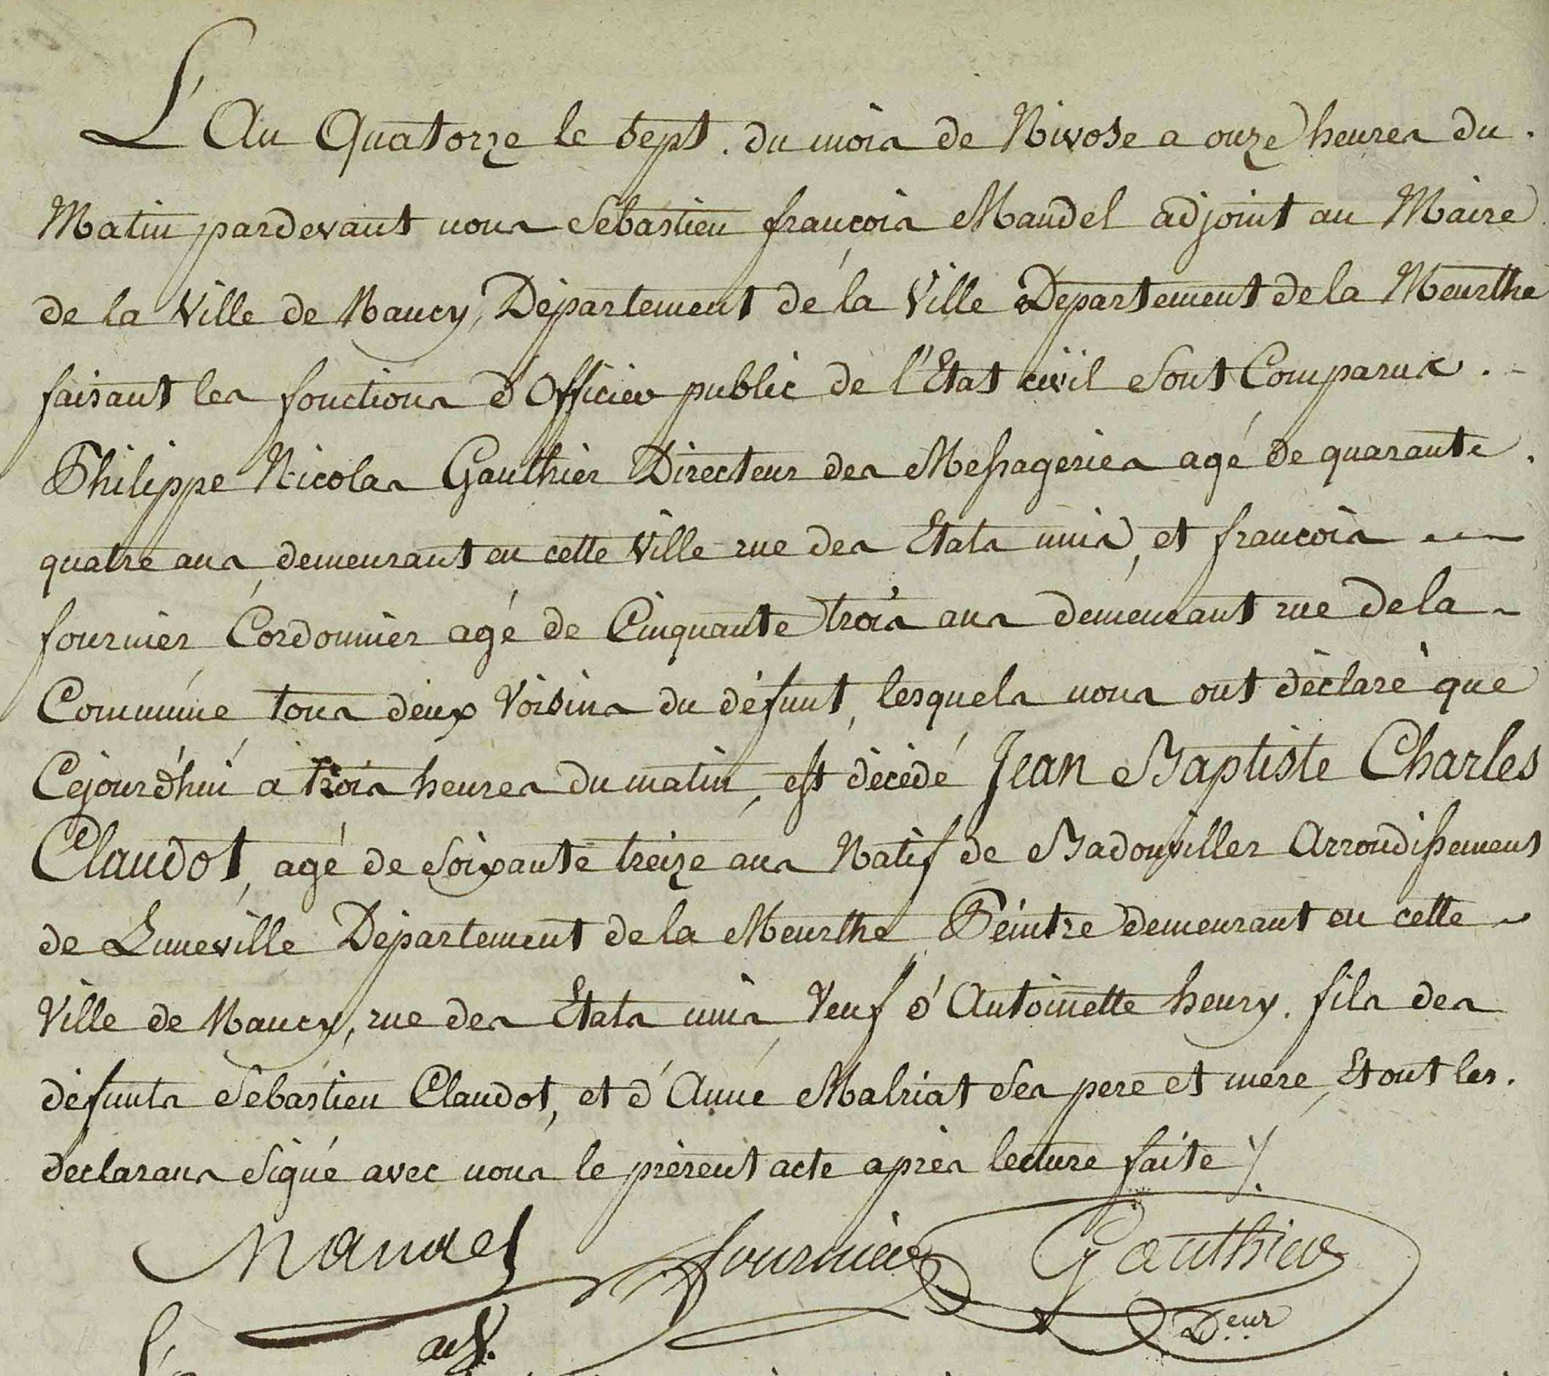 L'An Quatorze le sept . du mois de Nivose a onze heures du .
Matin pardevant nous Sébastien françois Mandel adjoint au Maire
de la Ville de Nancy, Département de la Ville Département de la Meurthe
faisant les fonctions d'Officier public de l'Etat civil Sont Comparus . -
Philippe Nicolas Gauthier Directeur des Messageries agé de quarante .
quatre ans, demeurant en cette Ville rue des Etats unis, et francois
fournier Cordonnier agé de Cinquante trois ans demeurant rue de la
Commune, tous deux Voisins du défunt, lesquels nous ont déclaré que
Cejourd'hui a trois heures du matin, est décédé Jean Baptiste Charles
Claudot, agé de Soixante treize ans Natif de Badonviller Arrondissement
de Luneville Département de la Meurthe Peintre demeurant en cette
Ville de Nancy, rue des Etats unis, Veuf d'Antoinette henry . fils des
défunts Sébastien Claudot, et d'Anne Malriat Ses pere et mere, Et ont les .
declarans Signé avec nous le présent acte après lecture faite ./.
Mandel fournier Gauthier
adj. D.eur